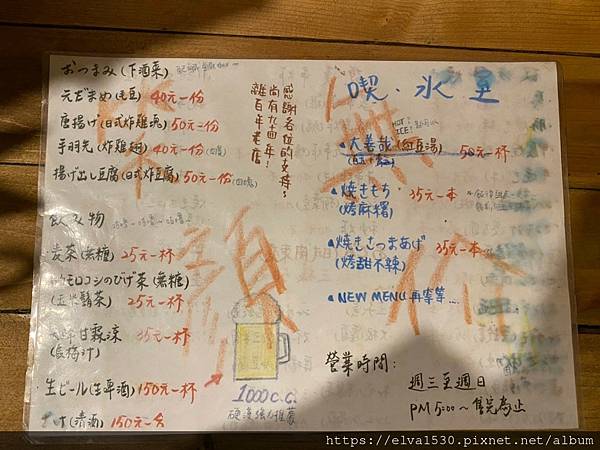 おつまみ(下酒菜)
元だまめ(毛豆) 40元一份
唐揚げ(日式炸雞) 50元一份
手羽先(炸雞翅) 40元一份
揚げ出し豆腐(日式炸豆腐) 50元一份
飲み物
麦茶(無糖) 25元一杯
トウモロコシのひげ茶(無糖)
(玉米鬚茶) 25元一杯
甘霖涼 35元一杯
(酸梅汁)
生ビール(生啤酒) 150元一杯
(清酒) 150元一
感謝各位的支持,
尚有九十四年!
離百年老店
1000c.c.
硬漢強力推薦
喫・氷室
HOT!
ICE!
▲大善哉(紅豆湯) 50元一杯
▲焼きもち 35元一本
(烤麻糬)
▲焼きさつまあげ 35元一本
(烤甜不辣)
▲NEW MENU 再等等....
營業時間:
週三至週日
PM 5:00～售完為止
https://elva1530.pixnet.net/album